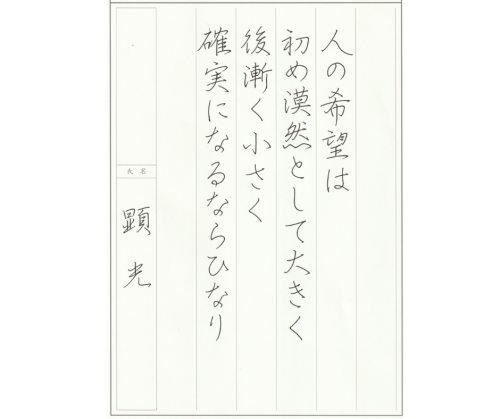 人の希望は
初め漠然として大きく
後漸く小さく
確実になるならひなり
氏名
顕光